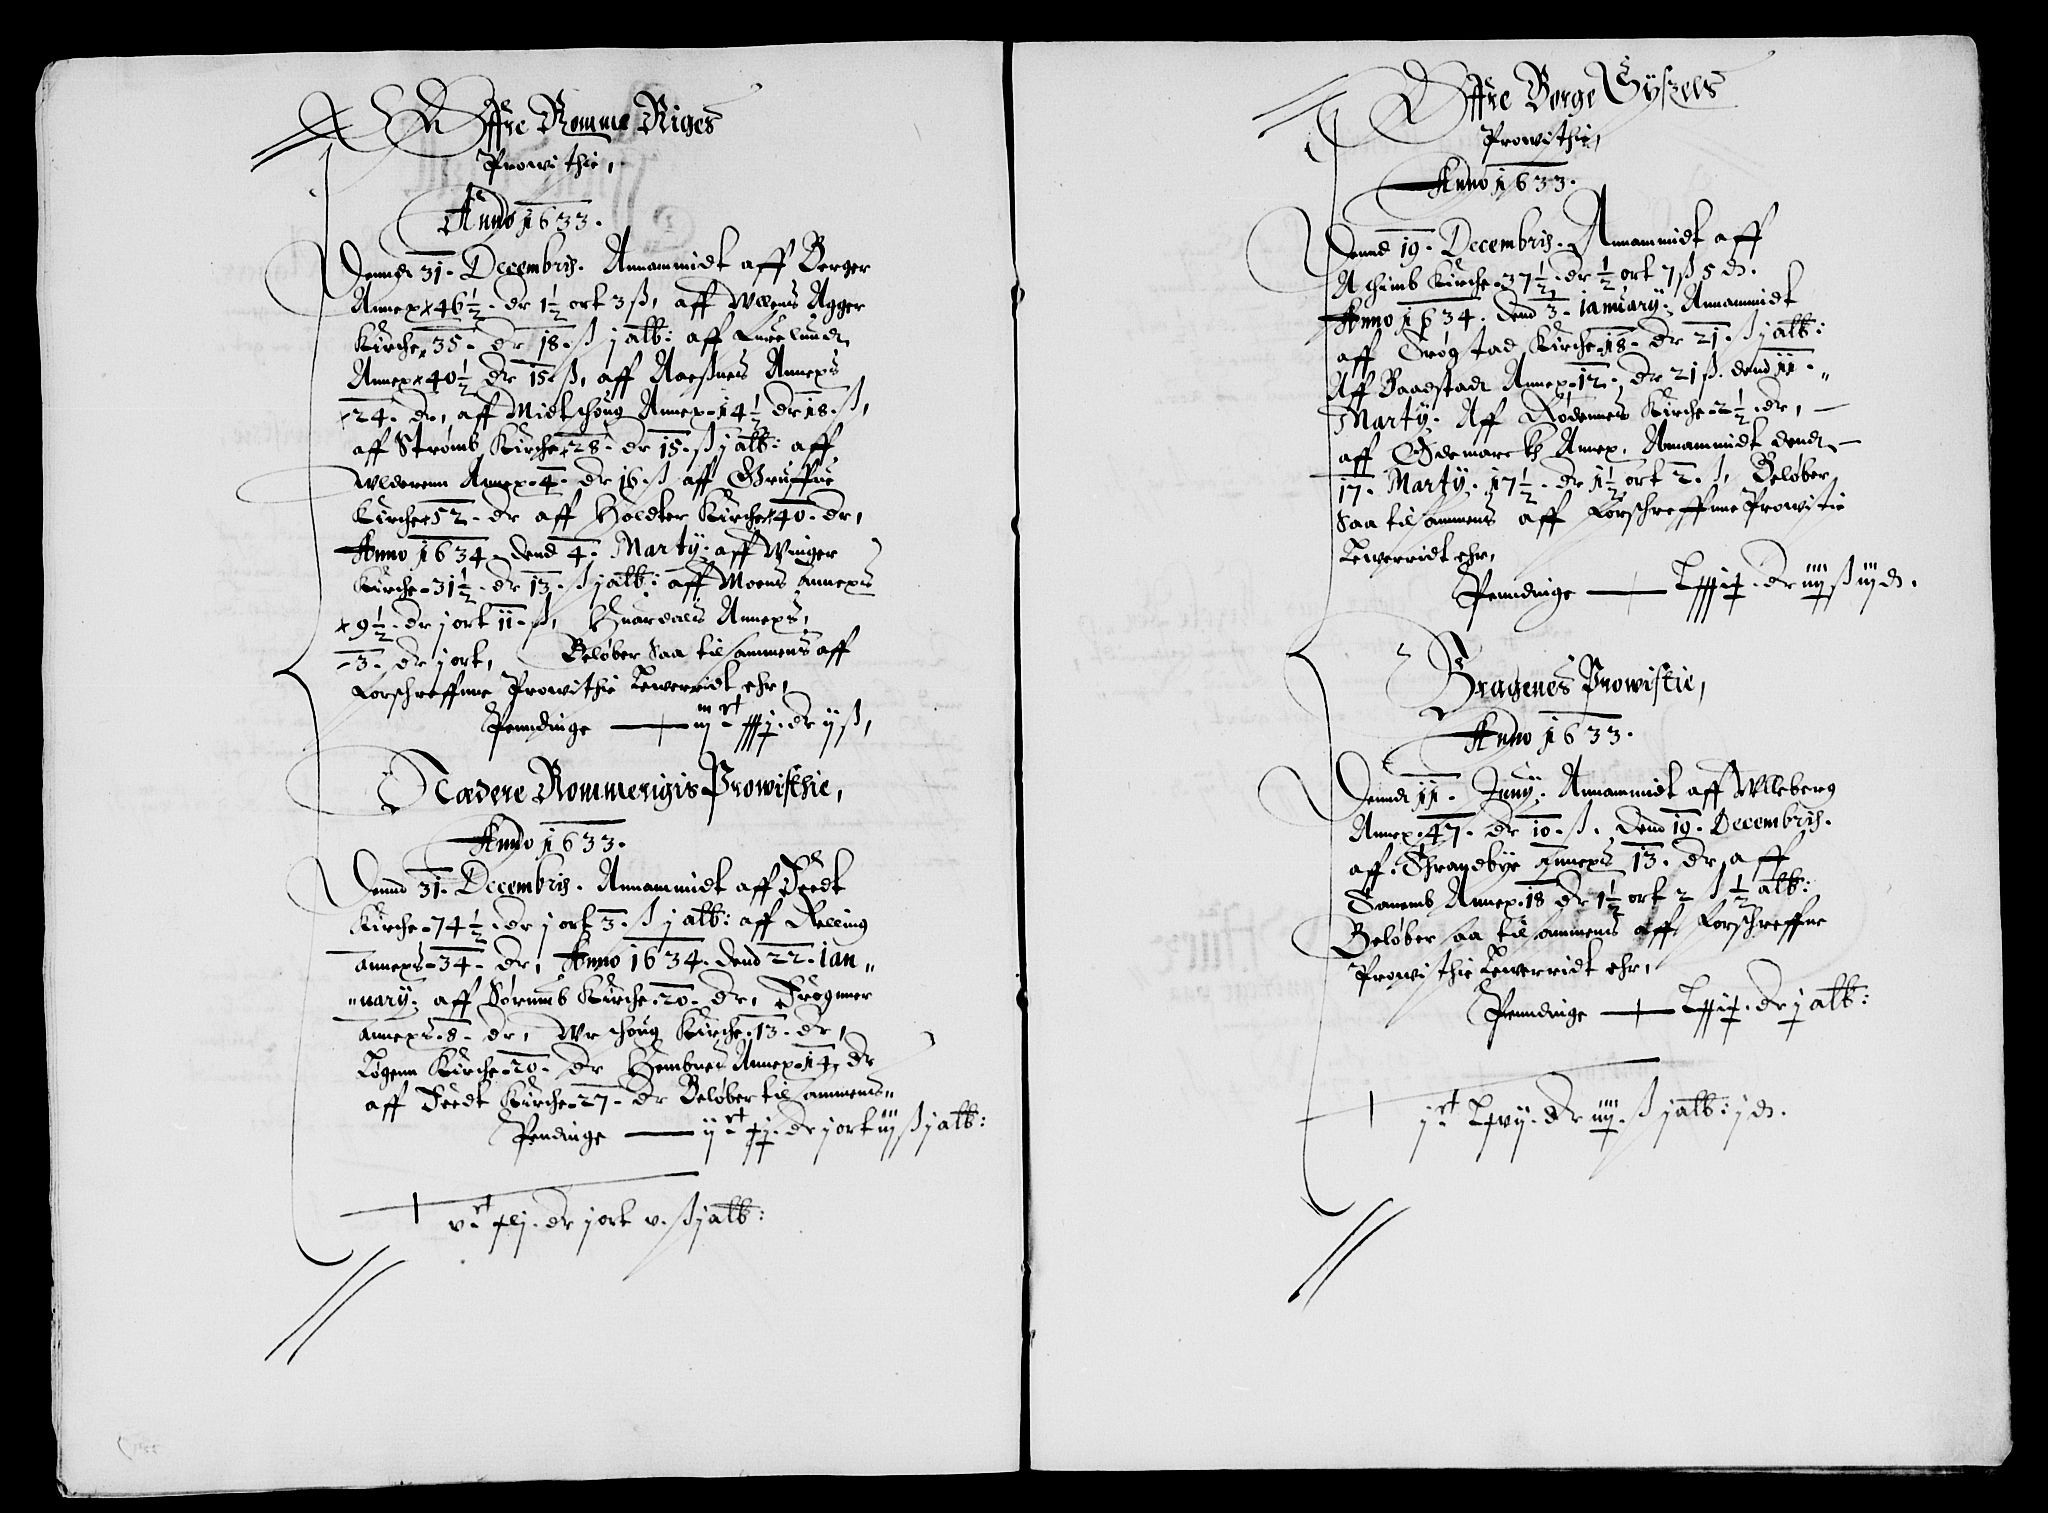 Øffre Romme Riges
Prowithie,
Anno 1633.
Dennd 31. Decembris. Annammidt aff Berger
Annex 46½. dr 1½ ort 3 ß, aff Ullens Agger
Kirche 35. dr 18. ß j alb: aff Furelundt
Annex 40½ dr 15 ß, aff Annexs
24. dr, aff Midtschoug Annex 14½ dr 18. ß,
aff Strømb Kirche 28. dr 15. ß j alb: aff
Ulderenn Annex 4. dr 16. ß aff Gruffue
Kirche 52. dr aff Holdter Kirche 40. dr,
Anno 1634. dend 4. Marty. aff Winger
Kirche 31½. dr 13. ß j alb: aff Moens annexs
9½. dr j ort 11. ß, Huardals Annexs,
3. dr j ort, Beløber saa tilsammens aff
Forschreffnne Prowithie Leuerridt ehr,
Penndinge dr ij ß,
Nædere Rommerigis Prowisthie,
Anno 1633.
Dennd 31. Decembris. Annammidt aff Feedt
Kirche 74½. dr j ort 3. ß j alb: aff Relling
annexs 34. dr, Anno 1634. dend 22. ian
uary. aff Sørumb Kirche 20. dr, Frogner
annexs 8. dr, Urschoug Kirche 13. dr,
Løgenn Kirche 20. dr Hembnes Annex 14. dr
aff Feedt Kirche 27. dr Beløber tilsammens
Pendinge ij dr j ort iij ß j alb:
v dr j ort v. ß j alb:
Øffre Borge Syßels
Prowithie,
Anno 1633.
Dennd 19. Decembris. Annammidt aff
Aschimb Kirche 37½. dr ½ ort 7 ß 5 d.
Anno 1634. dend 3. ianuary. Annammidt
aff Trøgstad Kirche 18. dr 21. ß j alb:
Aff Baadstadt Annex 12. dr 21 ß. dend 11.
Marty. Aff Rødennes Kirche 2½. dr,
aff Ødemarckh Annex. Annammidt dendt
17. Marty. 17½. dr 1½ ort 2. ß, Beløber
saa tilsammens aff Forschreffnne Prowitie
Leuerridt ehr,
Penndinge dr iiij ß iij d.
Bragenes Prowistie,
Anno 1633.
Dendt 11. Juny. Annammidt aff Ulleberg
Annex 47. dr 10. ß. Dend 19. Decembris.
aff. Strandbye Annexs 13. dr, aff
Sanemb Annex 18 dr 1½ ort 2 ß ½ alb:
Beløber saa tilsammens aff Forschreffne
Prowithie Leuerridt ehr,
Penndinge dr j alb:
dr iiij. ß j alb: j d.